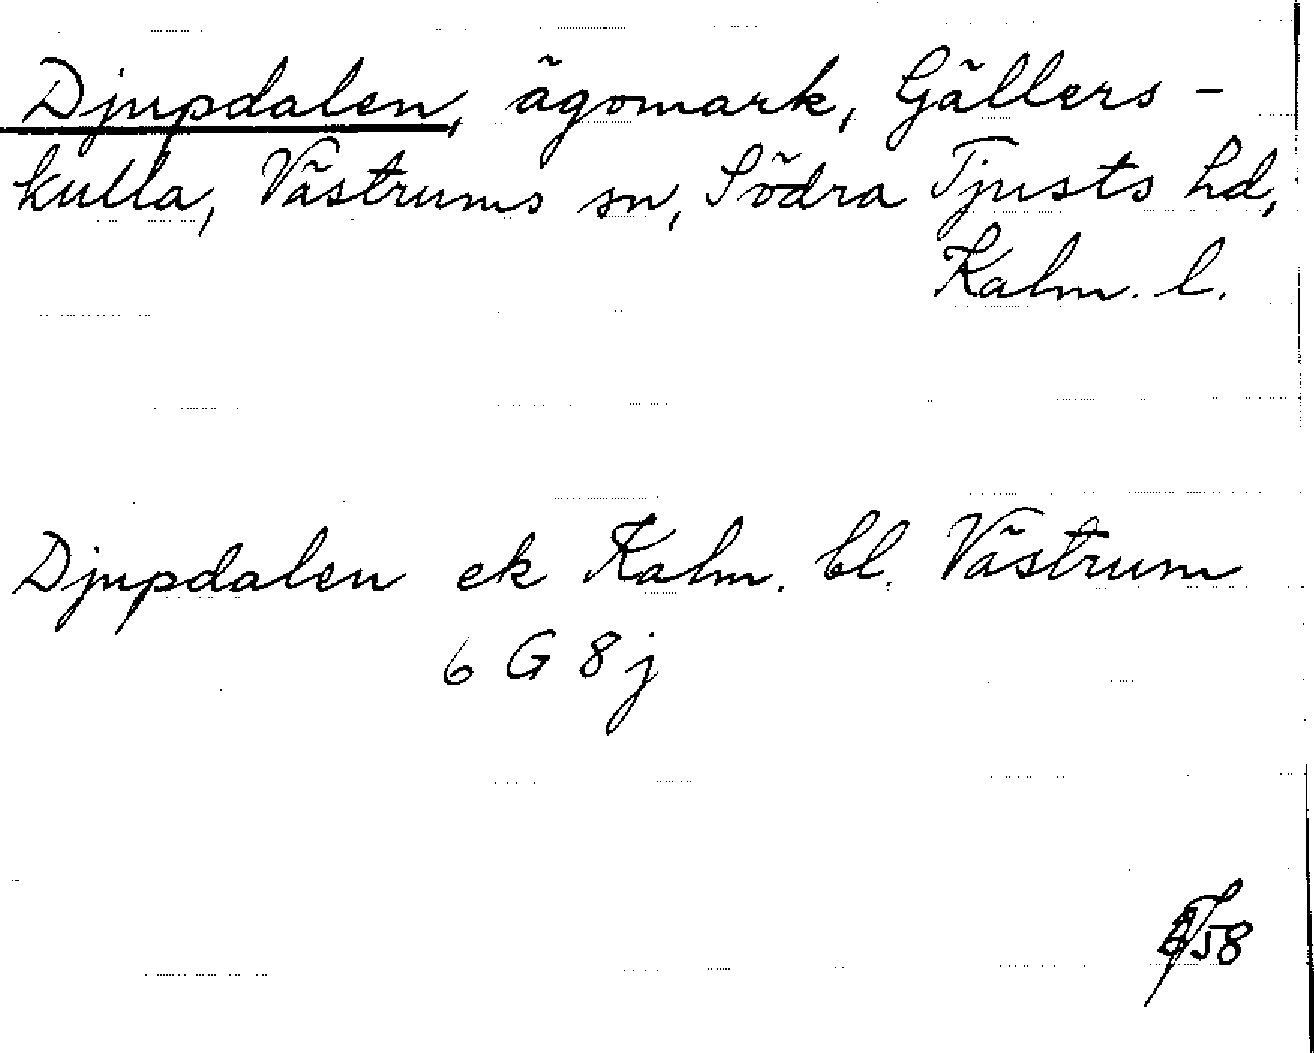 Djupdalen, ägomark, Gällers-
kulla, Västrums sn, Södra Tjusts hd,
Kalm. l.
Djupdalen ek Kalm. bl. Västrum
6 G 8 j
58